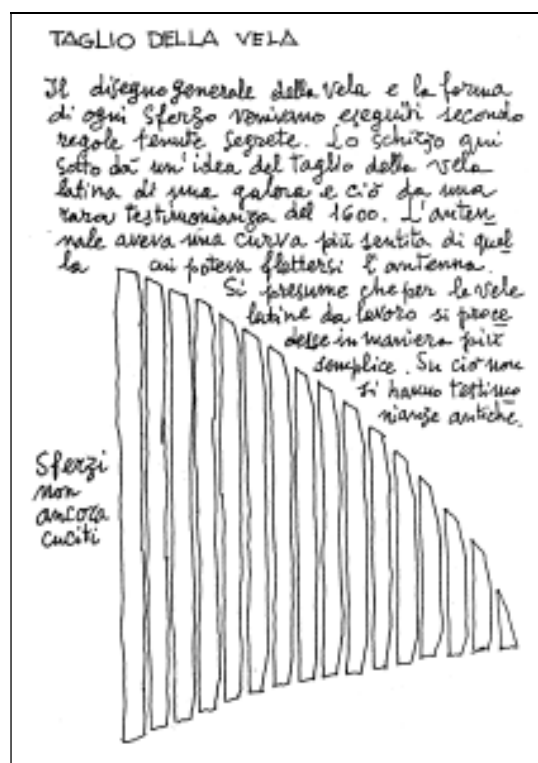 TAGLIO DELLA VELA
Il disegno generale della vela e la forma
di ogni sferzo venivano eseguiti secondo
regole tenute segrete. Lo schizzo qui
sotto dà un'idea del taglio della vela
latina di una galera e ciò da una
rara testimonianza del 1600. L'anten-
nale aveva una curva più sentita di quel
la cui poteva flettersi l'antenna.
Si presume che per le vele
latine da lavoro si proce
desse in maniera più
semplice. Su ciò non
si hanno testimo
nianze antiche.
Sferzi
non
ancora
cuciti